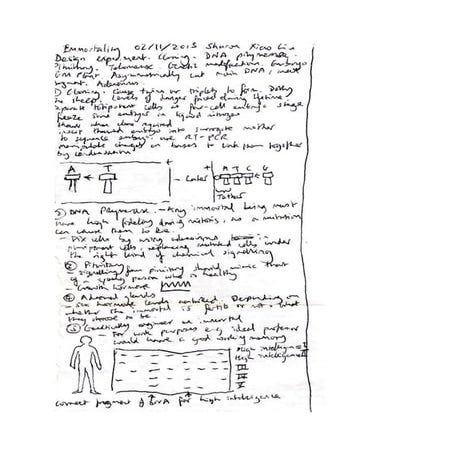 Immortality 02/11/2015 Sharon Xiao Liu
Design experiment. Cloning. DNA polymerase.
Pituitary. Telomerase. Genetic modification. Embryo
GM Plant. Asymmetrically cut main DNA, insert
Adrenal
1) Cloning. Cause twins or triplets to form. Dolly
the sheep. Levels of danger faced during lifetime
separate totipotent cells at four-cell embryo stage
freeze some embryos in liquid nitrogen
when required
insert thawed embryo into surrogate mother
to sequence embryo use RT-PCR
manipulate charges on bases to link them together
by condensation
A T Later A T C G
Tather
2) DNA Polymerase. - Any immortal being must
have high fidelity during mitosis, as a mutation
can cause them to die.
- Fix cells by using
pluripotent cells, replacing mutated cells under
the right kind of chemical signalling
3) Pituitary
signalling from pituitary should mimic that
of a young person who is healthy
Growth hormone
4) Adrenal glands
- sex hormone levels neutralized. Depending on
whether the immortal is fertile or not, what
they choose to be.
5) Genetically engineer an immortal
For work purposes e.g. ideal professor
would have a good working memory
High intelligence I
High intelligence II
III
IV
V
correct fragment of DNA for high intelligence